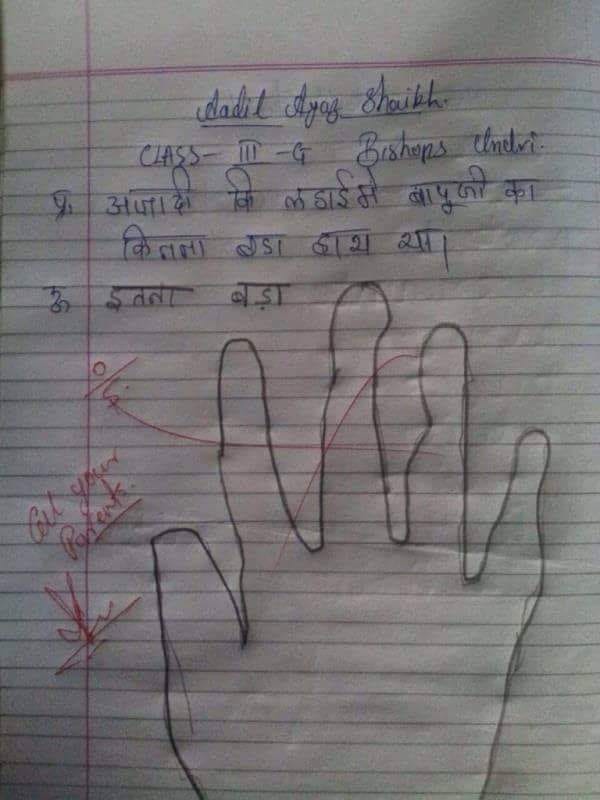 Aadil Ayaz Shaikh.
CLASS- III -G Bishops Undri.
प्र. अजादी कि लडाईमे बापूजी का
कितना बडा हाथ था।
उ इतना बड़ा
0
Call your
Parents.